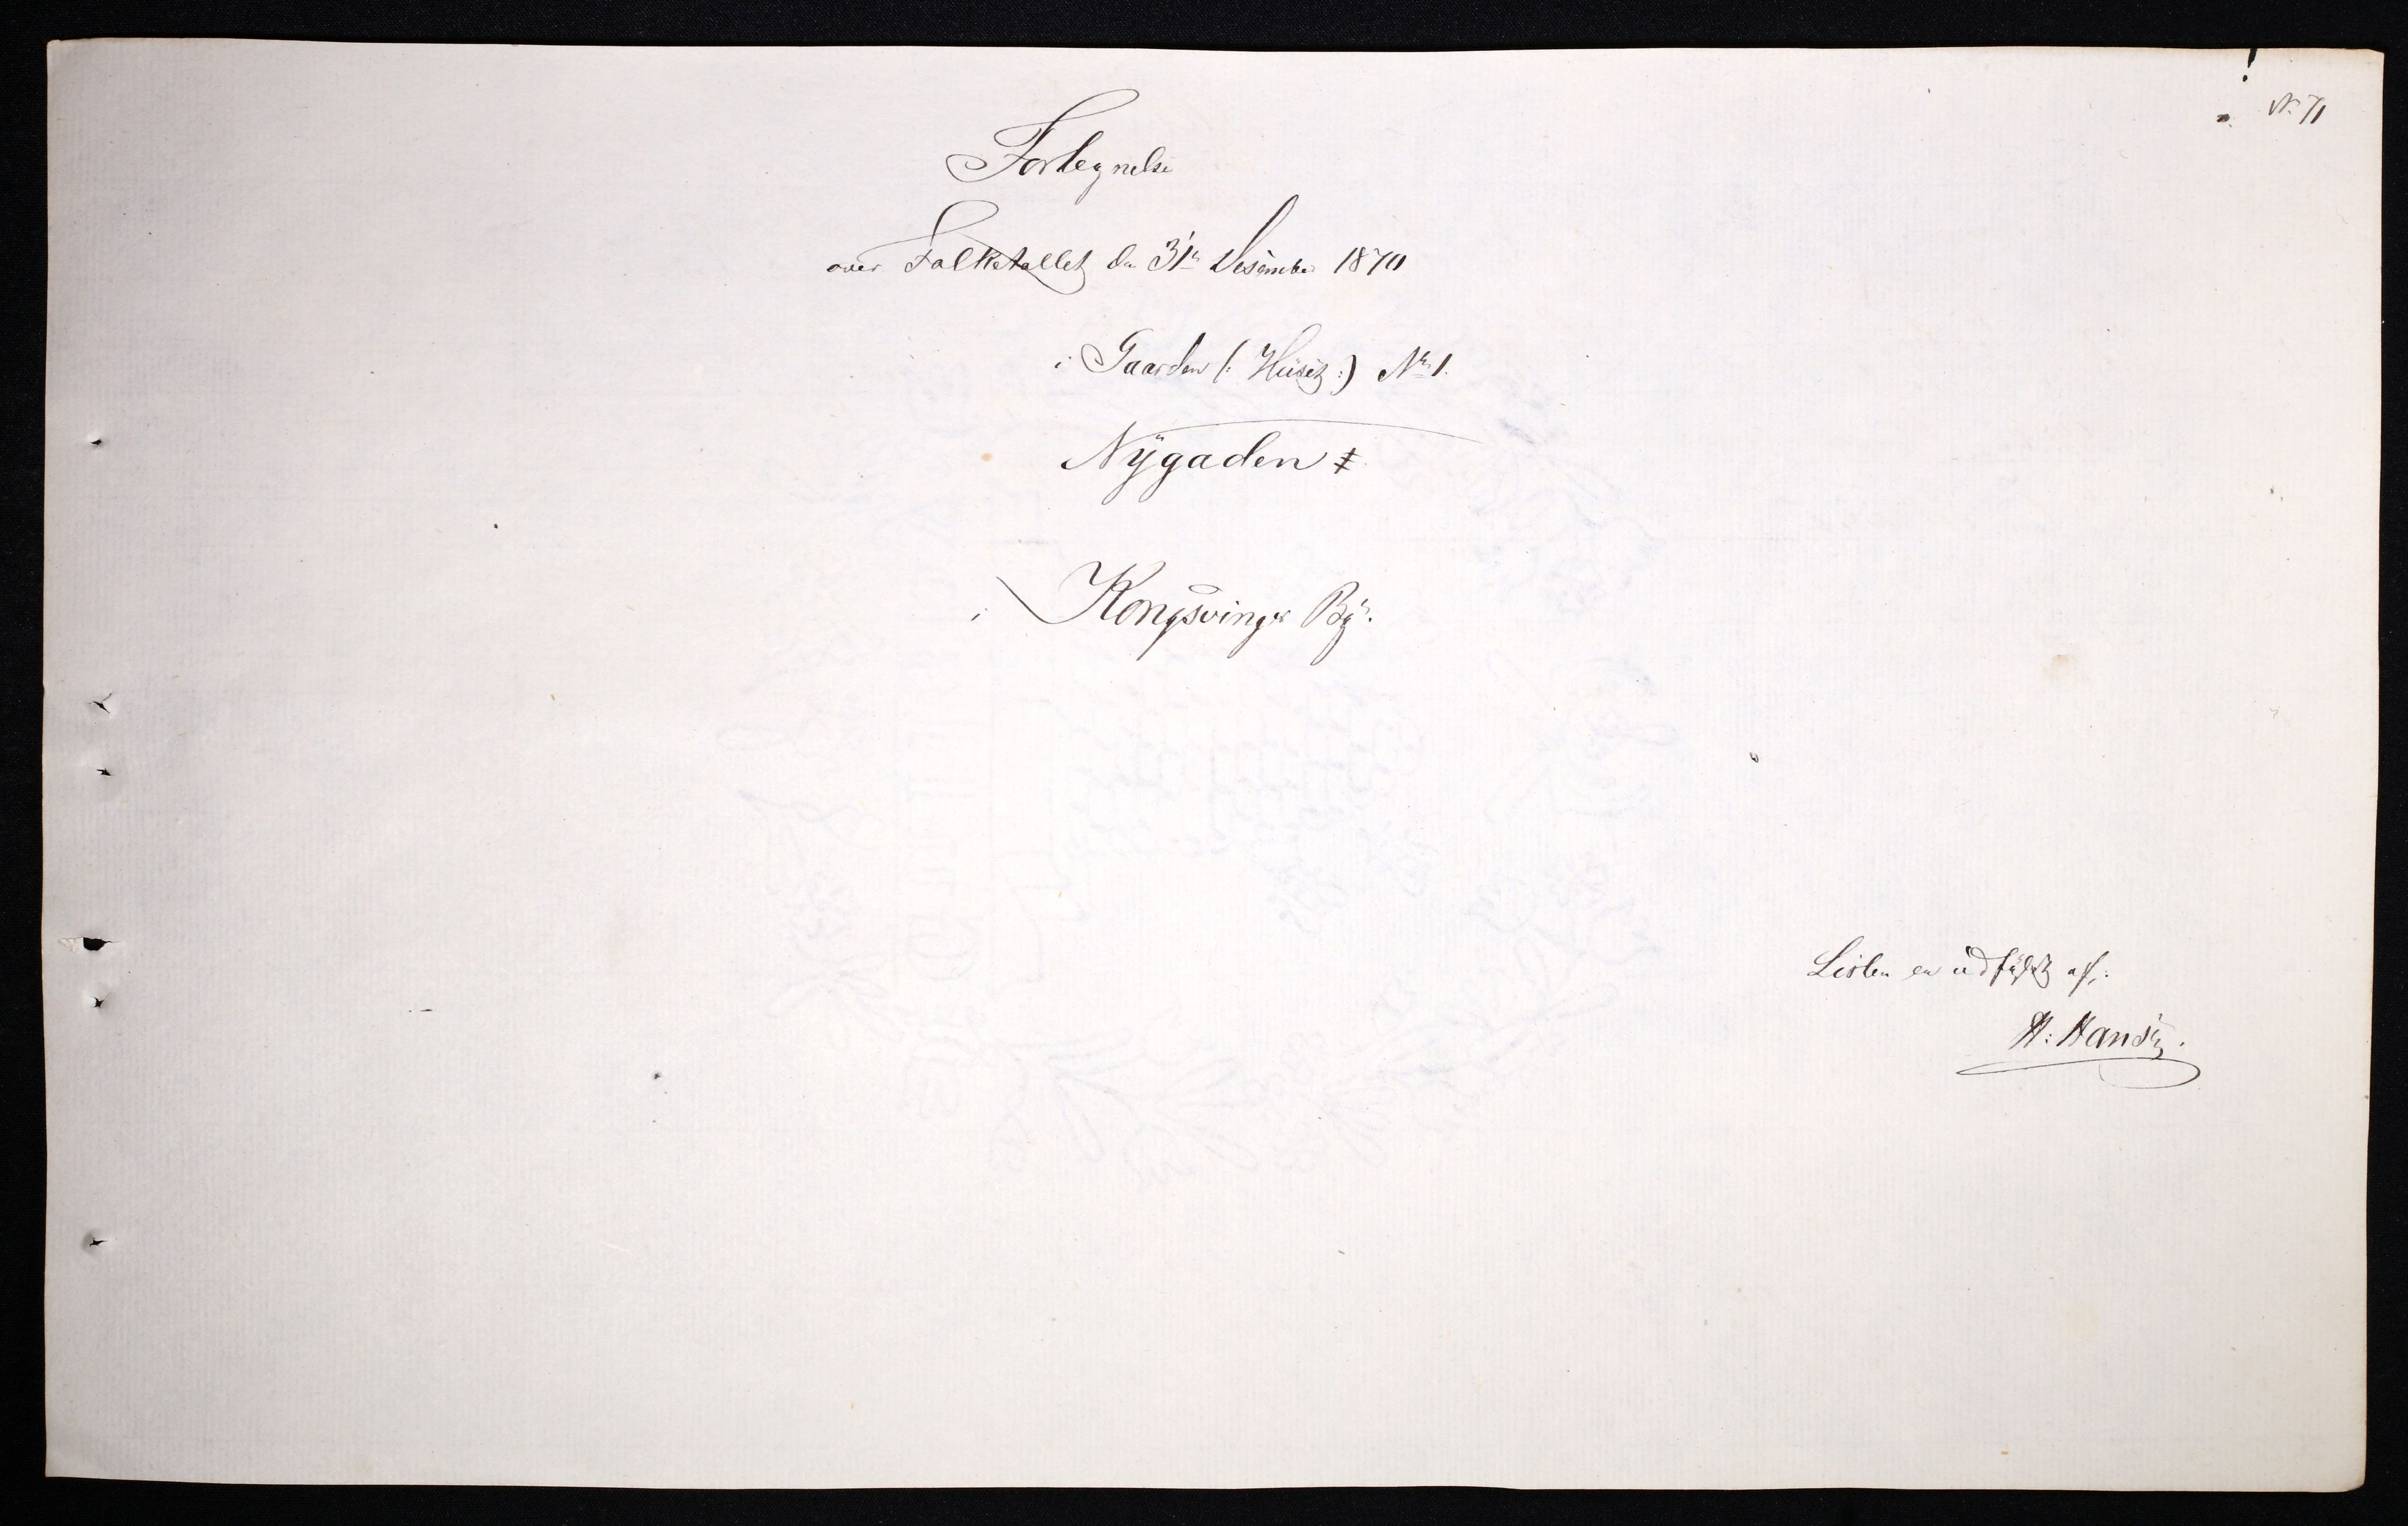 N. 71
Fortegnelse
over Folketallet den 31te Desember 1870
i Gaarden (: Huset :) No 1.
Nÿgaden
i Kongsvinger By.
Listen er udfÿlt af:
H: Hansen.